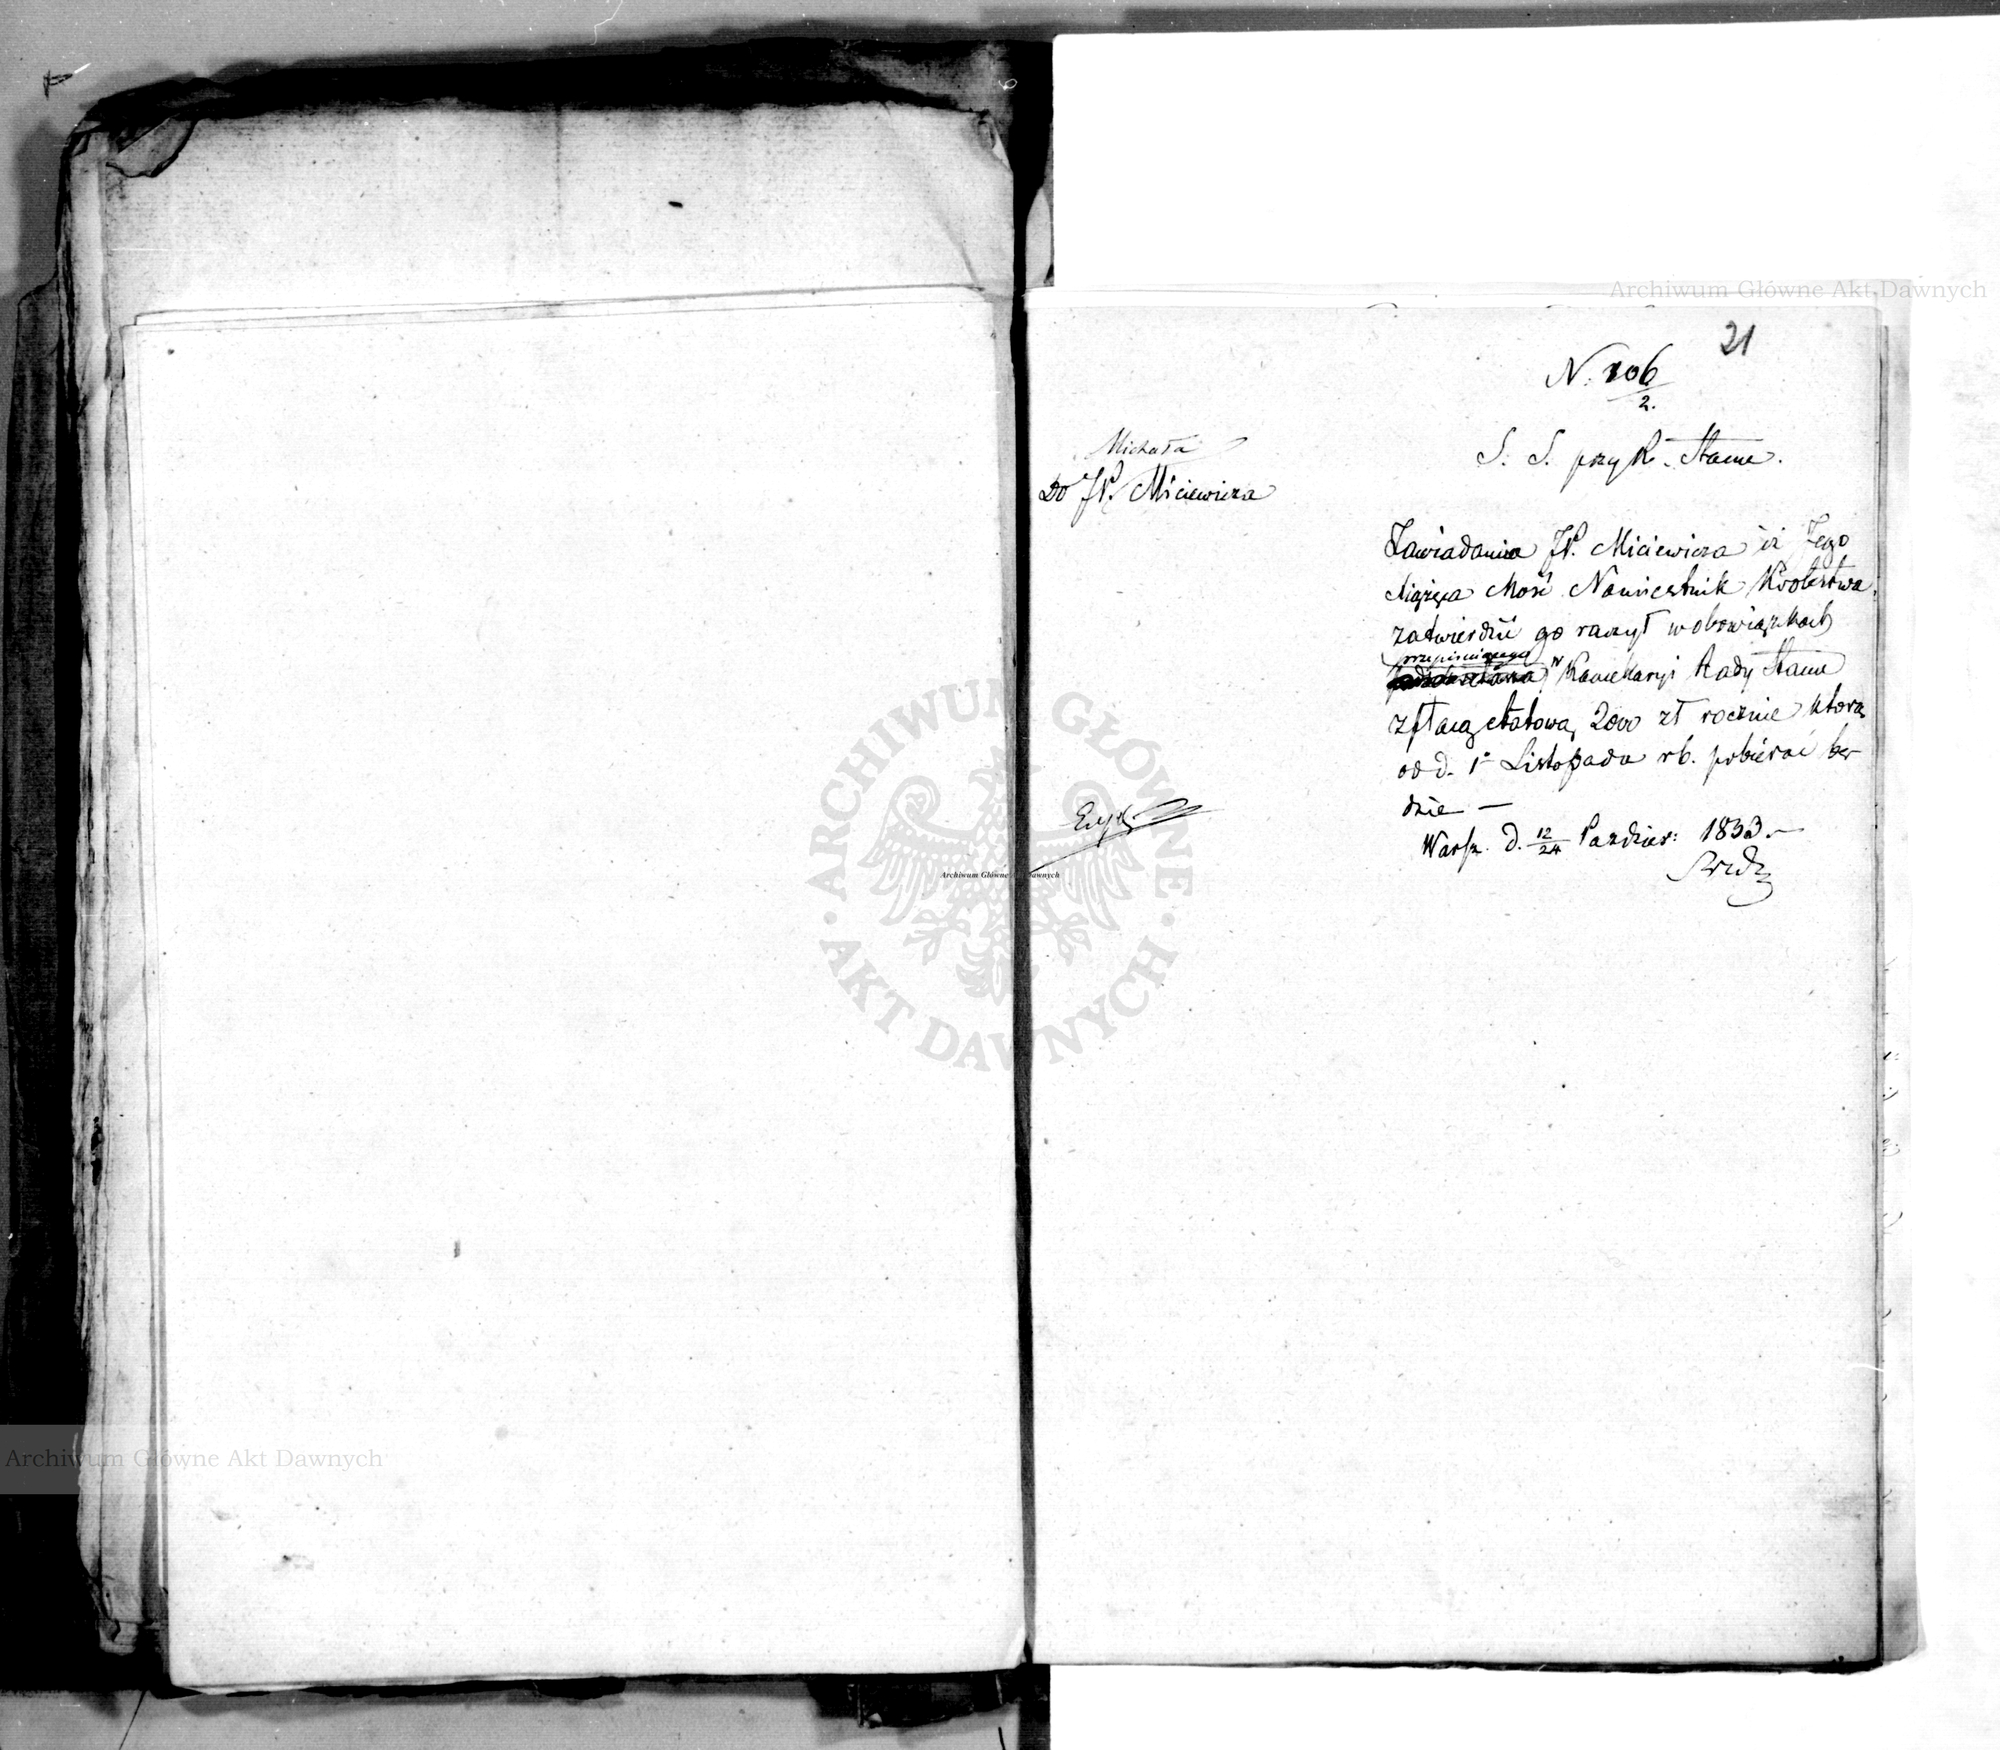 21
N. 106/2.
S. S. przy R. Stanu.
Michała
Do JP. Miciewicza
Zawiadamia JP. Miciewicza iż Jego
Xiążęca Mość Namiestnik Królestwa
zatwierdzić go raczył w obowiązkach
przepisuiącego
w Kancellaryi Rady Stanu
z płacą etatową 2000 zł rocznie którą
od d. 1o Listopada rb. pobierać bę-
dzie —
Warsz. d. 12/24 Paździer: 1833.—
Archiwum Główne Akt Dawnych
Archiwum Główne Akt Dawnych
Archiwum Główne Akt Dawnych
ARCHIWUM GŁÓWNE
AKT DAWNYCH